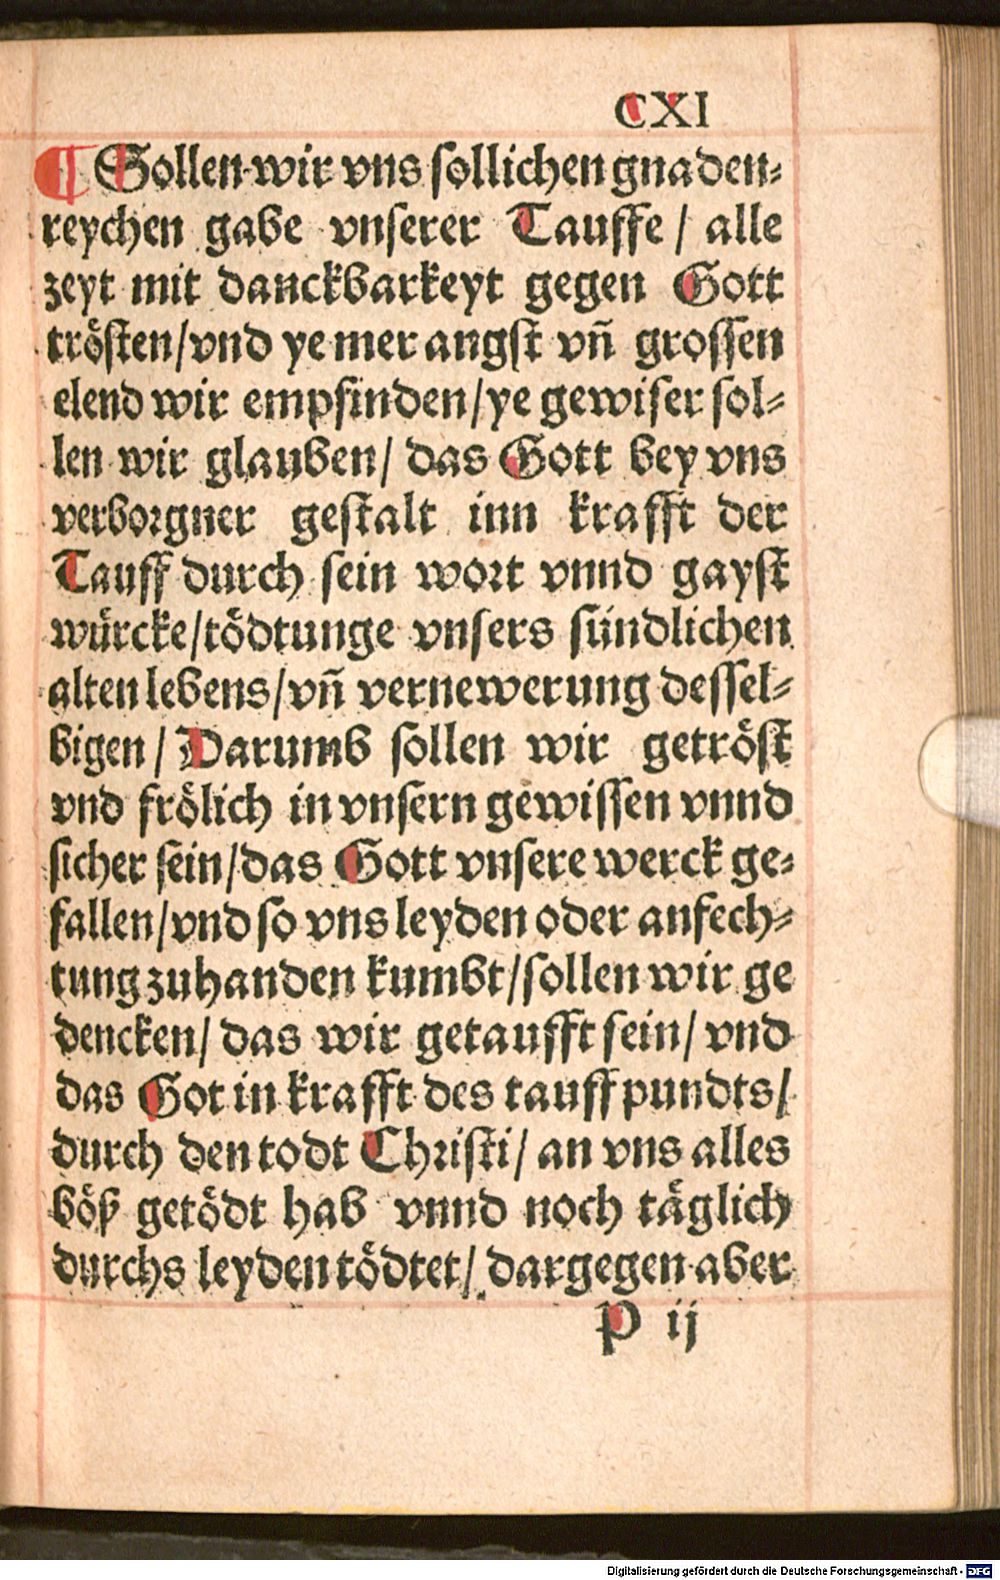 CXI
¶ Sollen wir vns sollichen gnaden⸗
reychen gabe vnserer Tauffe / alle
zeyt mit danckbarkeyt gegen Gott
trösten/vnd ye mer angst vñ grossen
elend wir empfinden/ye gewiser sol⸗
len wir glauben/ das Gott bey vns
verborgner gestalt inn krafft der
Tauff durch sein wort vnnd gayst
würcke/tödtunge vnsers sündlichen
alten lebens/vñ vernewerung dessel⸗
bigen / Darumb sollen wir getröst
vnd frölich in vnsern gewissen vnnd
sicher sein/das Gott vnsere werck ge⸗
fallen/vnd so vns leyden oder anfech⸗
tung zuhanden kumbt/sollen wir ge
dencken/ das wir getaufft sein/ vnd
das Got in krafft des tauff pundts/
durch den todt Christi/ an vns alles
böß getödt hab vnnd noch täglich
durchs leyden tödtet/ dargegen aber
P ij
Digitalisierung gefördert durch die Deutsche Forschungsgemeinschaft - DFG